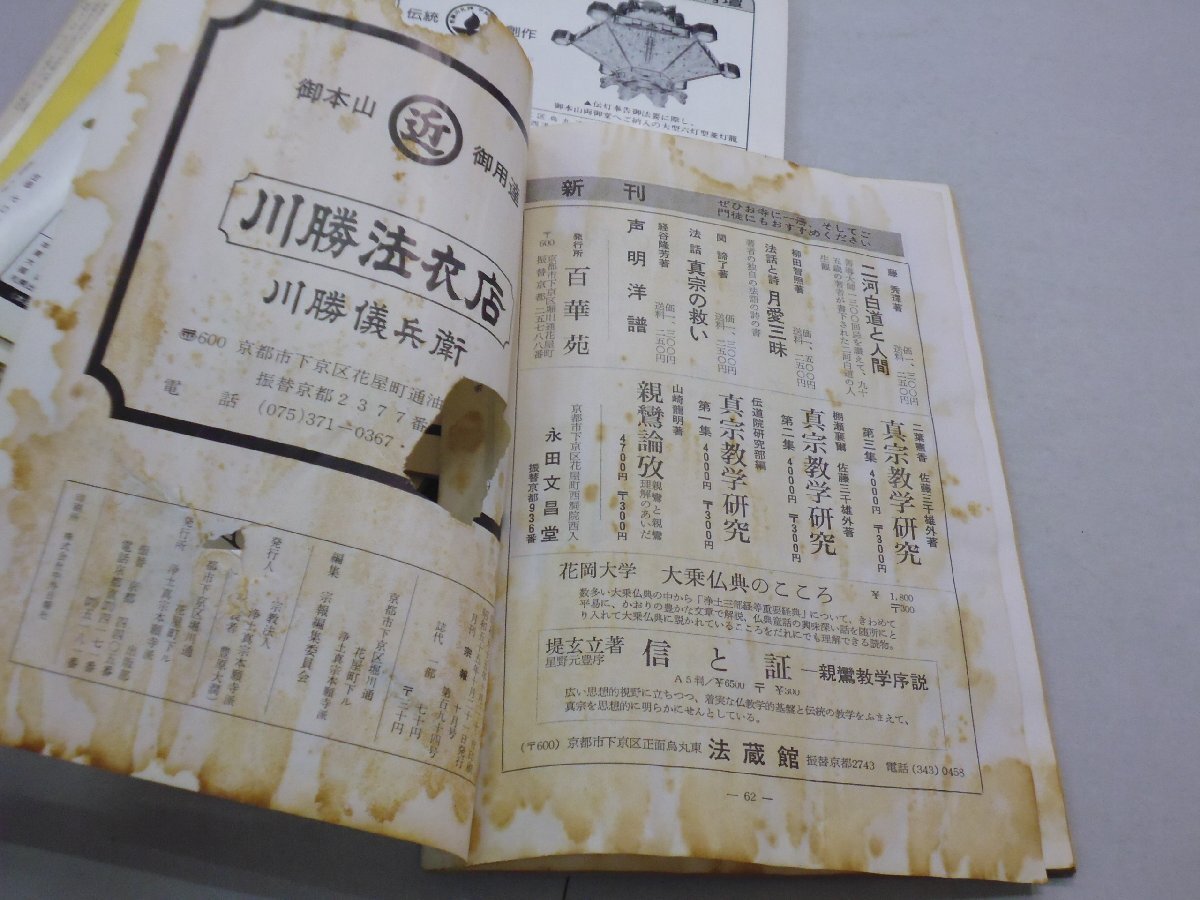 伝統
創作
▲伝灯奉告御法要に際し、
御本山両御堂へご納入の大型六灯型菱灯籠
御本山
近
御用達
川勝法衣店
川勝儀兵衛
〒600 京都市下京区花屋町通油
振替京都2377番
電話 (075)371-0367・
月刊 宗報 十月号
第百九十四号
誌代 一部 七十円
〒二十円
京都市下京区堀川通
花屋町下ル
浄土真宗本願寺派
編集 宗報編集委員会
宗教法人
発行人 浄土真宗本願寺派
豊原大潤
都市下京区堀川通
花屋町下ル
発行所 浄土真宗本願寺派
出版部
新刊
ぜひお寺に一冊、そしてご
門徒にもおすすめください
藤秀璻著
二河白道と人間
価一、三〇〇円
送料 二五〇円
善導大師一三〇〇回忌を讃えて、九十
五歳の著者が書下された二河白道の人
生観
柳田智照著
法話と詩 月愛三昧
価一、五〇〇円
送料 二五〇円
著者の独自の法語の詩の書
関諦了著
法話 真宗の救い
価一、三〇〇円
送料 二五〇円
経谷隆芳著
声明洋譜
価一、三〇〇円
送料 二五〇円
発行所 百華苑
〒600 京都市下京区堀川通花屋町
振替京都二五七八八番
二葉憲香 佐藤三千雄外著
真宗教学研究
第三集 4000円 〒300円
棚瀬襄爾 佐藤三千雄外著
真宗教学研究
第二集 4000円 〒300円
伝道院研究部編
真宗教学研究
第一集 4000円 〒300円
山崎龍明著
親鸞論攷 親鸞と親鸞
理解のあいだ
4700円 〒300円
京都市下京区花屋町西洞院西入
永田文昌堂
振替京都936番
花岡大学 大乗仏典のこころ ¥1,800
〒300
数多い大乗仏典の中から「浄土三部経等重要経典」について、きわめて
平易に、かおりの豊かな文章で解説、仏典童話の興味深い話を随所にと
り入れて大乗仏典に説かれているこころをだれにでも理解できる読物。
堤玄立著
星野元豊序
信と証 ―親鸞教学序説
A5判/¥6500 〒¥300
広い思想的視野に立ちつつ、着実な仏教学的基盤と伝統の教学をふまえて、
真宗を思想的に明らかにせんとしている。
(〒600) 京都市下京区正面烏丸東 法蔵館 振替京都2743 電話(343)0458
― 62 ―